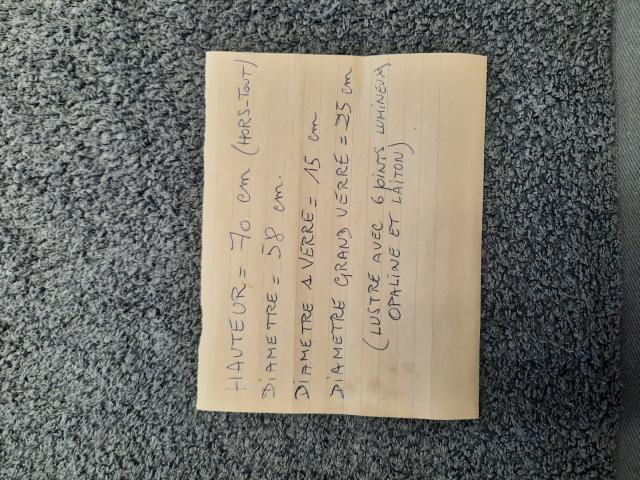 HAUTEUR = 70 cm (HORS-TOUT)
DIAMETRE = 58 cm.
DIAMETRE 1 VERRE = 15 cm
DIAMETRE GRAND VERRE = 25 cm
(LUSTRE AVEC 6 POINTS LUMINEUX)
OPALINE ET LAITON)